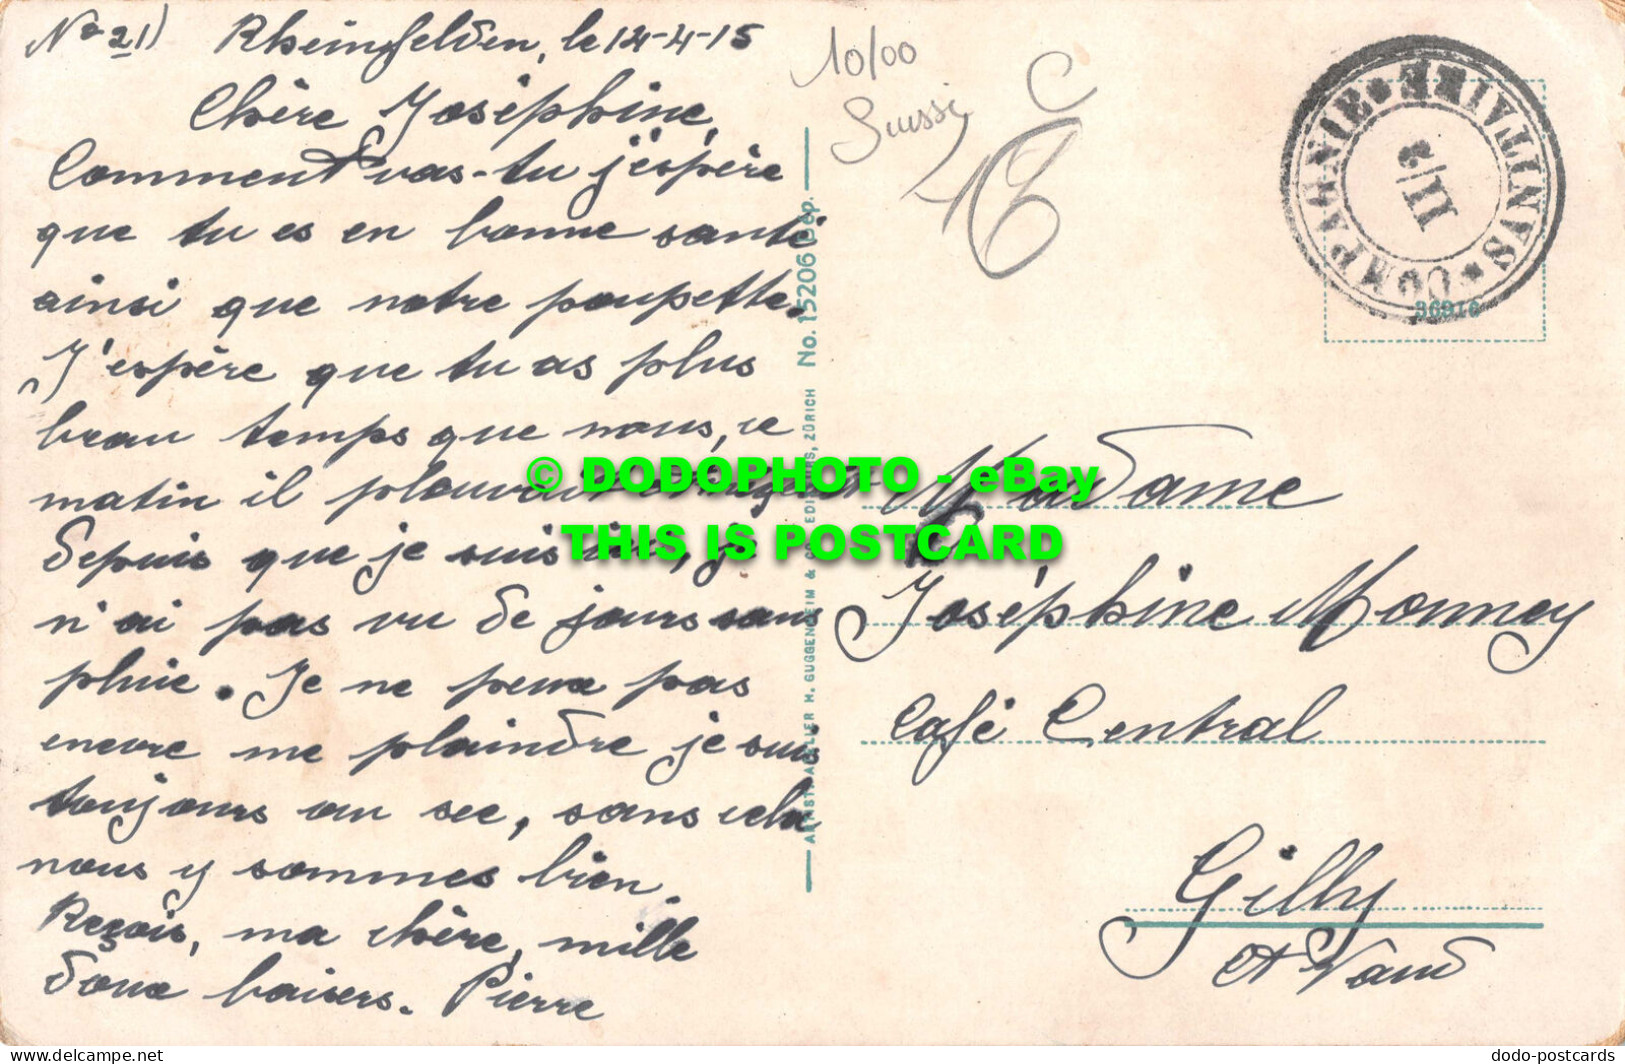 No 21) Rheinfelden, le 14-4-15
Chère Joséphine,
Comment vas-tu j'éspère
que tu es en bonne santé
ainsi que notre poupette.
J'espère que tu as plus
beau temps que nous, ce
matin il
depuis que je suis ici, je
n'ai pas vu de jours sans
pluie. Je ne peux pas
encore me plaindre je suis
toujours au sec, sans cela
nous y sommes bien.
Reçois, ma chère, mille
doux baisers. Pierre
10/00
Suisse
C
COMPAGNIE SANITAIRE
II/2
36916
No. 15206 Dép.
ART. ATELIER H. GUGGENHEIM & CO. EDITEURS, ZÜRICH
Madame
Joséphine Monney
Café Central
Gilly
Ct Vaud
© DODOPHOTO - eBay
THIS IS POSTCARD
www.delcampe.net
dodo-postcards